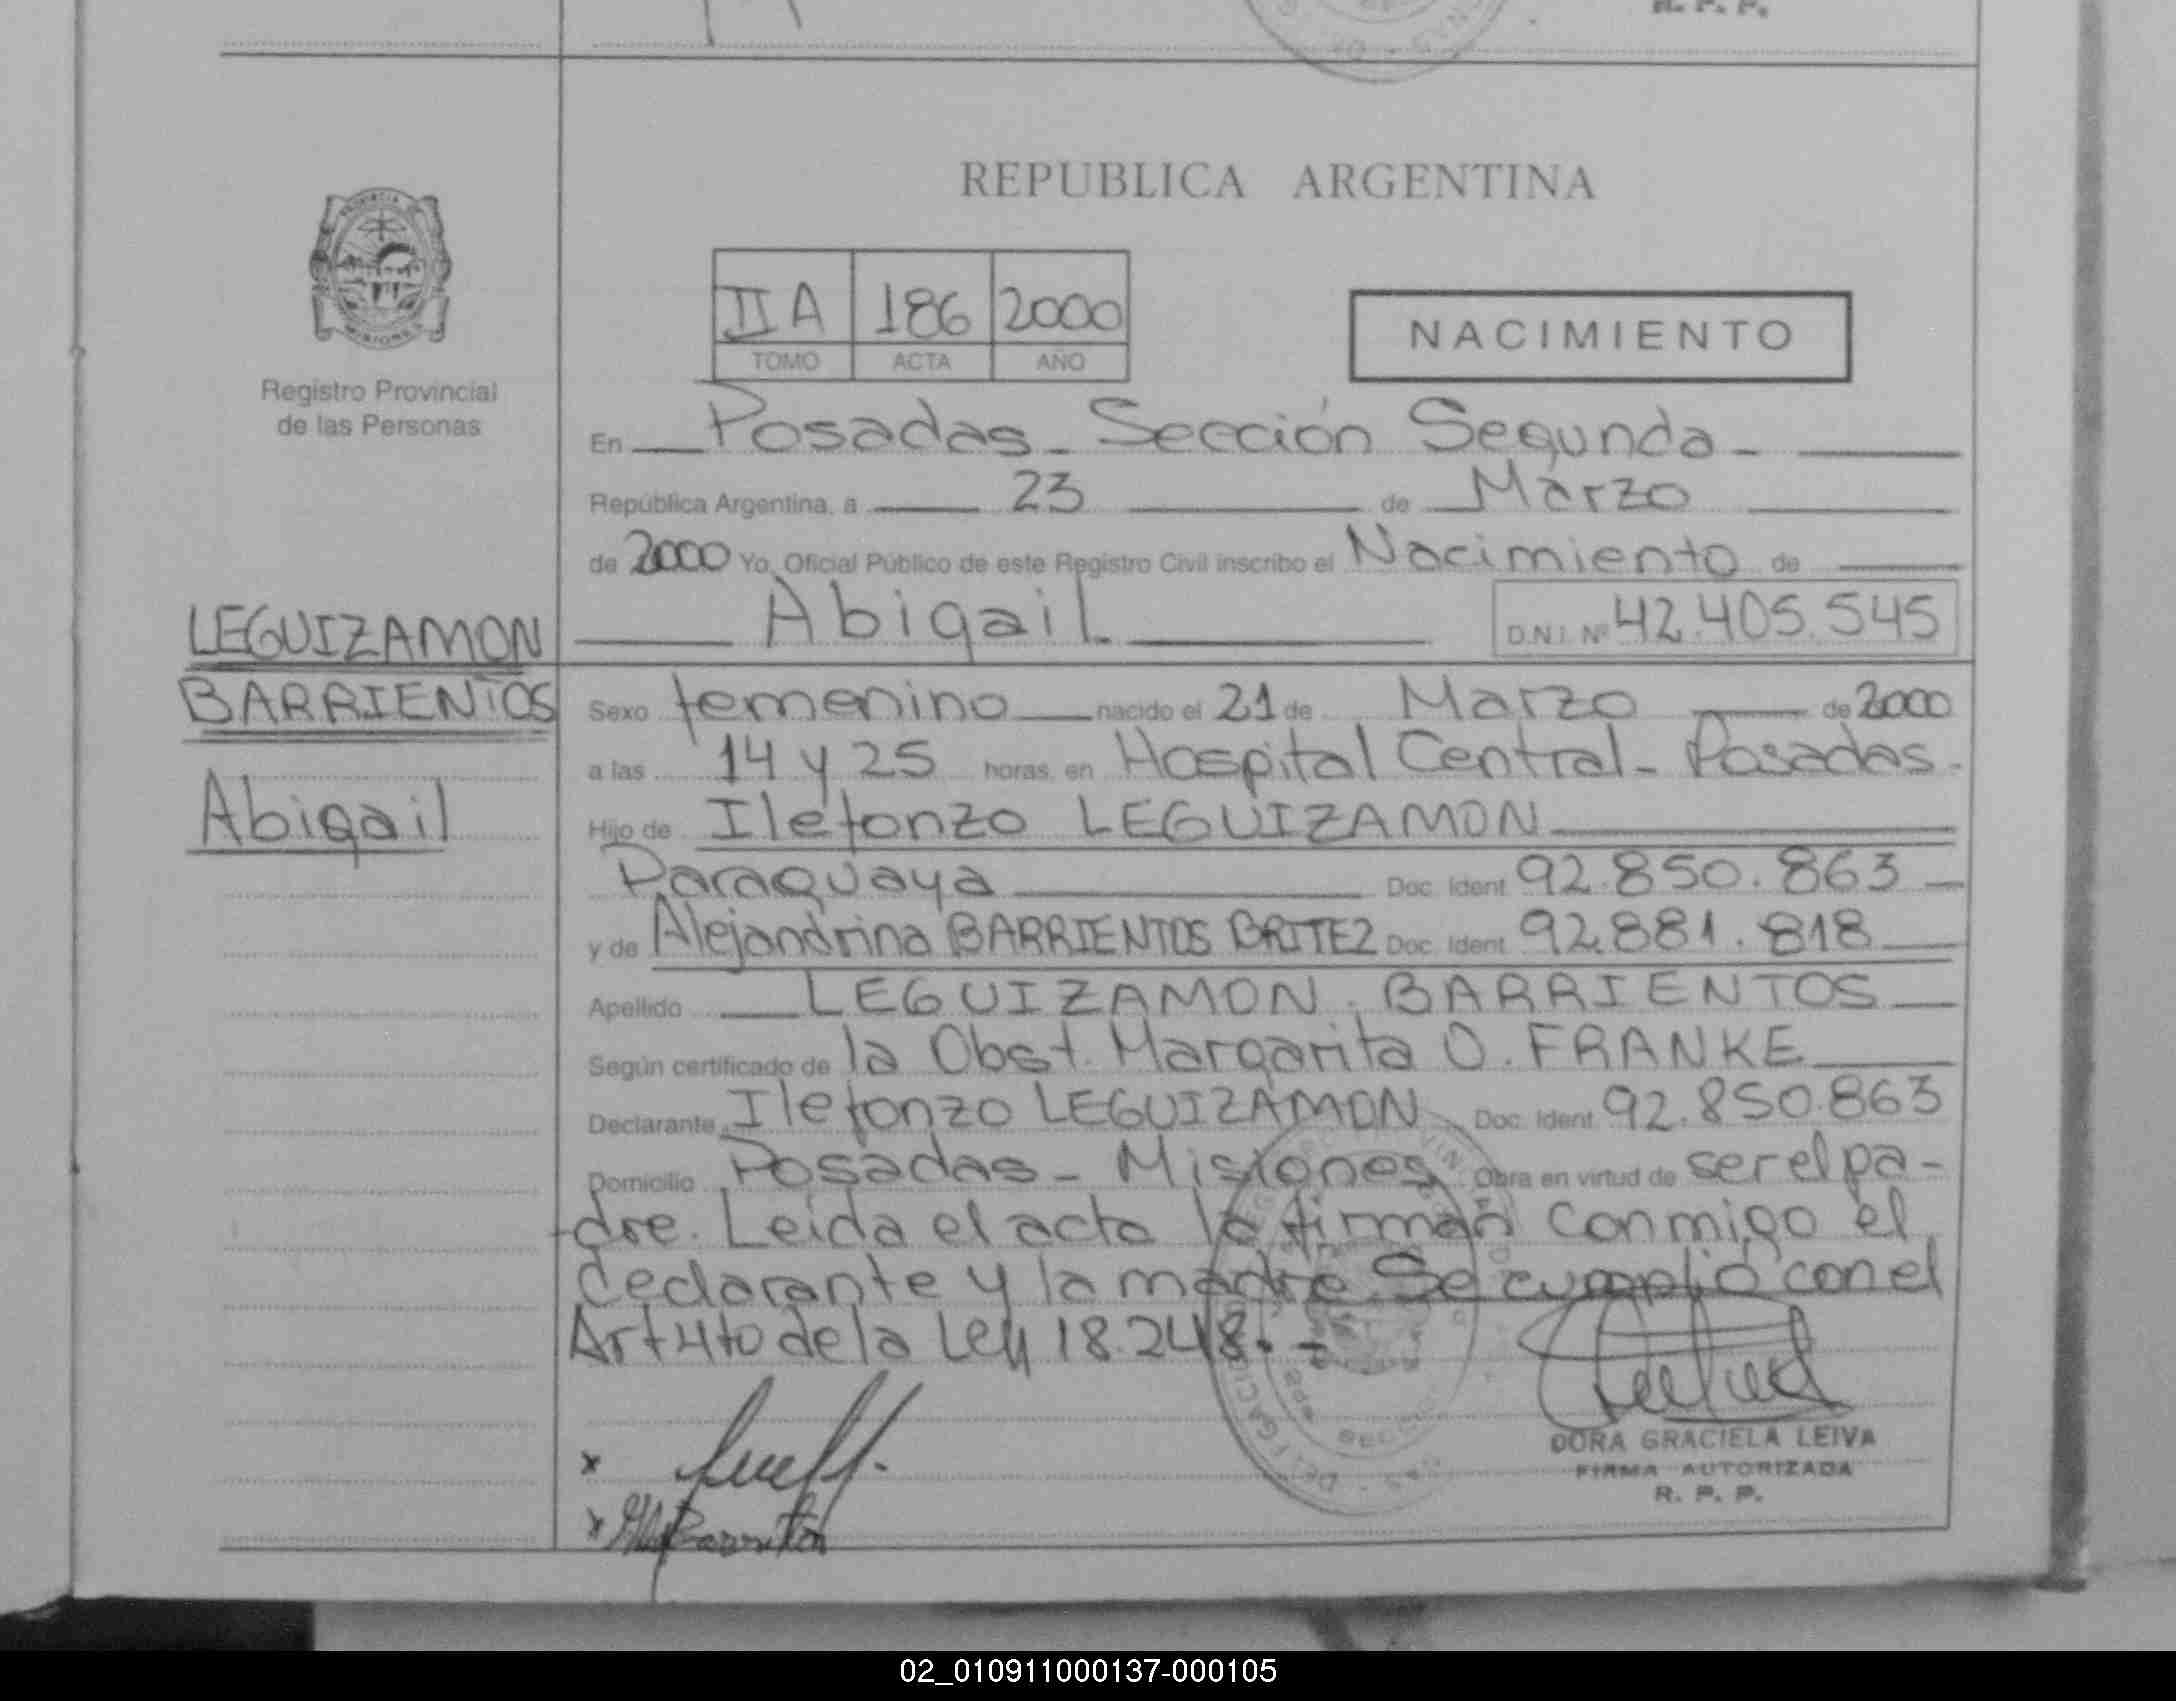 R. P. P.
REPUBLICA ARGENTINA
II A 186 2000
TOMO ACTA AÑO
NACIMIENTO
Registro Provincial
de las Personas
En Posadas - Sección Segunda -
República Argentina, a 23 de Marzo
de 2000 Yo, Oficial Público de este Registro Civil inscribo el Nacimiento de
Abigail D.N.I. Nº 42.405.545
LEGUIZAMON
BARRIENTOS
Abigail
Sexo femenino nacido el 21 de Marzo de 2000
a las 14 y 25 horas, en Hospital Central - Posadas -
Hijo de Ilefonzo LEGUIZAMON
Paraguaya Doc. Ident. 92.850.863
y de Alejandrina BARRIENTOS BRITEZ Doc. Ident. 92.881.818
Apellido LEGUIZAMON BARRIENTOS
Según certificado de la Obst. Margarita O. FRANKE
Declarante Ilefonzo LEGUIZAMON Doc. Ident. 92.850.863
Domicilio Posadas - Misiones Obra en virtud de ser el pa-
dre. Leida el acta la firman conmigo el
declarante y la madre. Se cumplió con el
Art 4to de la Ley 18.248. -
DORA GRACIELA LEIVA
FIRMA AUTORIZADA
R. P. P.
02_010911000137-000105